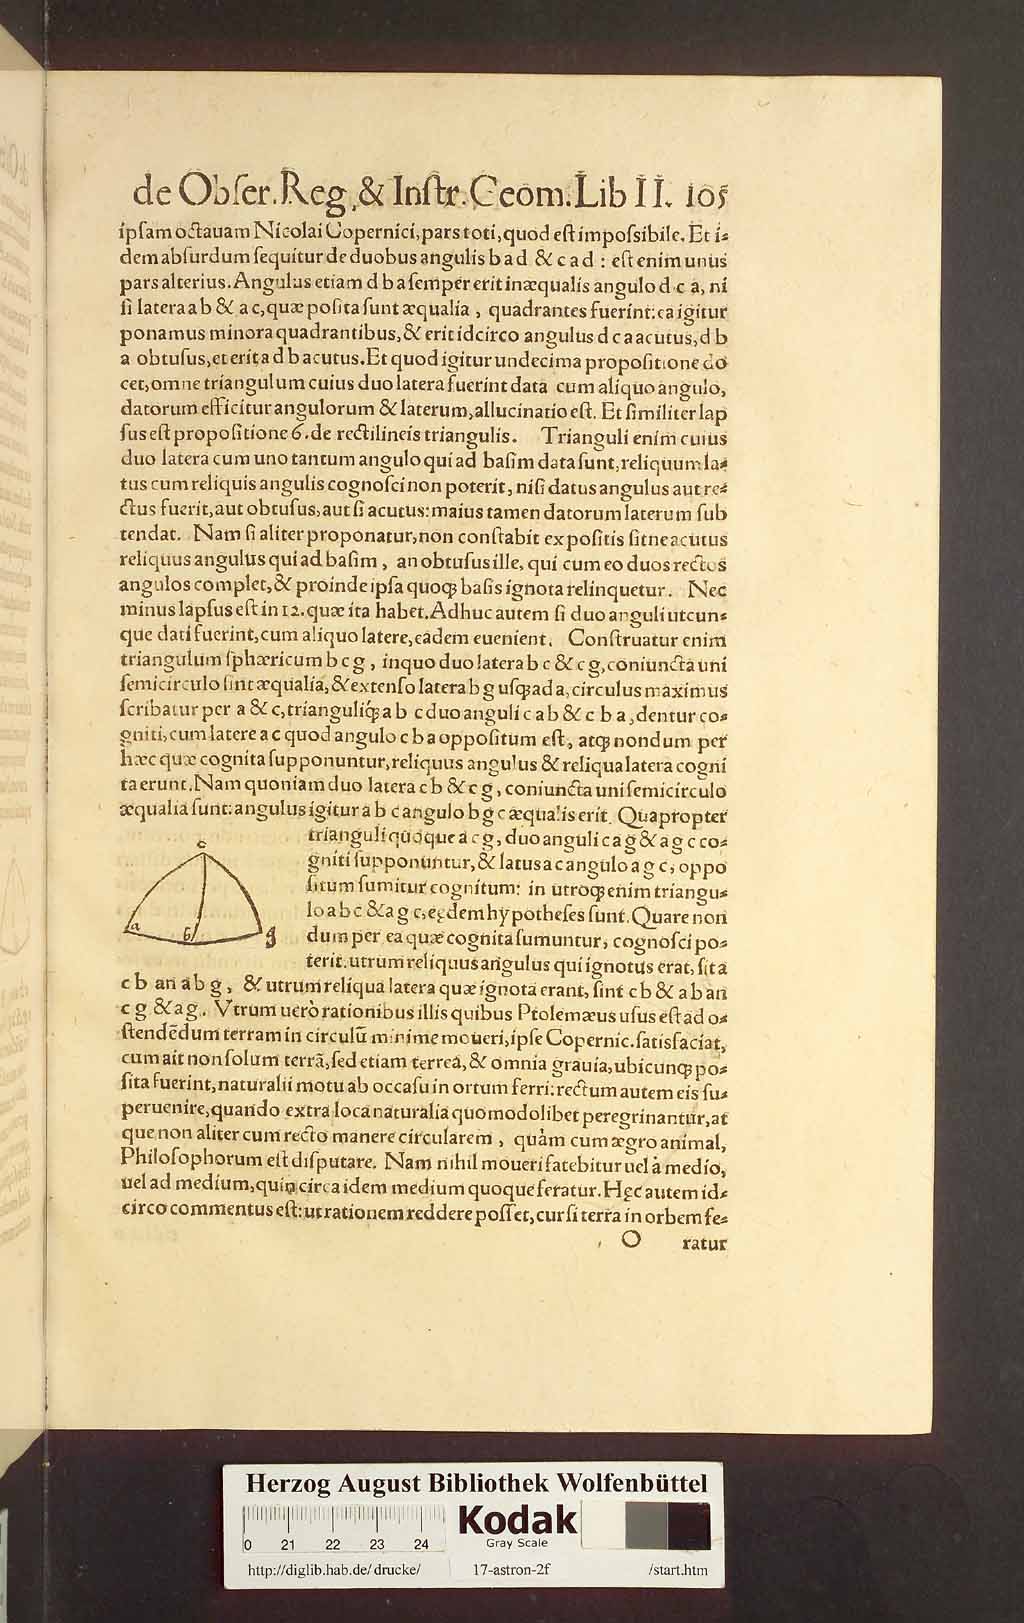 de Obſer. Reg. & Inſtr. Geom. Lib II. 105
ipſam octauam Nicolai Copernici, pars toti, quod eſt impoſsibile. Et i⸗
dem abſurdum ſequitur de duobus angulis b a d & c a d : eſt enim unus
pars alterius. Angulus etiam d b a ſemper erit inæqualis angulo d c a, ni
ſi latera a b & a c, quæ poſita ſunt æqualia , quadrantes fuerint: ea igitur
ponamus minora quadrantibus, & erit idcirco angulus d c a acutus, d b
a obtuſus, et erit a d b acutus. Et quod igitur undecima propoſitione do
cet, omne triangulum cuius duo latera fuerint data cum aliquo angulo,
datorum efficitur angulorum & laterum, allucinatio eſt. Et ſimiliter lap
ſus eſt propoſitione 6. de rectilineis triangulis. Trianguli enim cuius
duo latera cum uno tantum angulo qui ad baſim data ſunt, reliquum la⸗
tus cum reliquis angulis cognoſci non poterit, niſi datus angulus aut re⸗
ctus fuerit, aut obtuſus, aut ſi acutus: maius tamen datorum laterum ſub
tendat. Nam ſi aliter proponatur, non conſtabit ex poſitis ſitne acutus
reliquus angulus qui ad baſim , an obtuſus ille, qui cum eo duos rectos
angulos complet, & proinde ipſa quoqꝫ baſis ignota relinquetur. Nec
minus lapſus eſt in 12. quæ ita habet. Adhuc autem ſi duo anguli utcun⸗
que dati fuerint, cum aliquo latere, eadem euenient. Conſtruatur enim
triangulum ſphæricum b c g , in quo duo latera b c & c g, coniuncta uni
ſemicirculo ſint æqualia, & extenſo latera b g uſqꝫ ad a, circulus maximus
ſcribatur per a & c, trianguliqꝫ a b c duo anguli c a b & c b a, dentur co⸗
gniti, cum latere a c quod angulo c b a oppoſitum eſt, atqꝫ nondum per
hæc quæ cognita ſupponuntur, reliquus angulus & reliqua latera cogni
ta erunt. Nam quoniam duo latera c b & c g, coniuncta uni ſemicirculo
æqualia ſunt: angulus igitur a b c angulo b g c æqualis erit. Quapropter
trianguli quoque a c g, duo anguli c a g & a g c co⸗
gniti ſupponuntur, & latus a c angulo a g c, oppo
ſitum ſumitur cognitum: in utroqꝫ enim triangu⸗
lo a b c & a g c, eędem hypotheſes ſunt. Quare non
dum per ea quæ cognita ſumuntur, cognoſci po⸗
terit. utrum reliquus angulus qui ignotus erat, ſit a
c b an a b g , & utrum reliqua latera quæ ignota erant, ſint c b & a b an
c g & a g. Vtrum uerò rationibus illis quibus Ptolemæus uſus eſt ad o⸗
ſtendēdum terram in circulū minime moueri, ipſe Copernic. ſatisfaciat,
cum ait non ſolum terrā, ſed etiam terrea, & omnia grauia, ubicunqꝫ po⸗
ſita fuerint, naturali motu ab occaſu in ortum ferri: rectum autem eis ſu⸗
peruenire, quando extra loca naturalia quomodolibet peregrinantur, at
que non aliter cum recto manere circularem , quàm cum ægro animal,
Philoſophorum eſt diſputare. Nam nihil moueri fatebitur uel à medio,
uel ad medium, quin circa idem medium quoque feratur. Hęc autem id⸗
circo commentus eſt: ut rationem reddere poſſet, cur ſi terra in orbem fe⸗
O ratur
c
a b g
Herzog August Bibliothek Wolfenbüttel
0 21 22 23 24
Kodak
Gray Scale
http://diglib.hab.de/drucke/ 17-astron-2f /start.htm